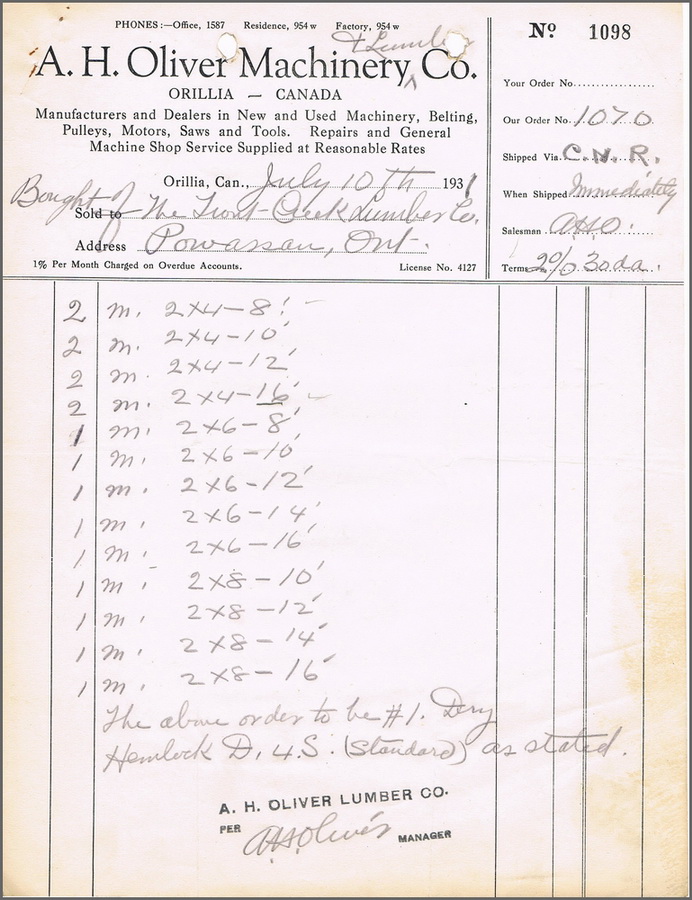 PHONES:—Office, 1587 Residence, 954 w Factory, 954 w
& Lumber
A. H. Oliver Machinery Co.
ORILLIA — CANADA
Manufacturers and Dealers in New and Used Machinery, Belting,
Pulleys, Motors, Saws and Tools. Repairs and General
Machine Shop Service Supplied at Reasonable Rates
Orillia, Can., July 10th 1931
Bought of
Sold to The Trout Creek Lumber Co.
Address Powassan, Ont.
1% Per Month Charged on Overdue Accounts. License No. 4127
No 1098
Your Order No.
Our Order No. 1070
Shipped Via. C.N.R.
When Shipped Immediately
Salesman AHO.
Terms 2% 30 da.
2 m. 2x4-8'
2 m. 2x4-10'
2 m. 2x4-12'
2 m. 2x4-16'
1 m. 2x6-8'
1 m. 2x6-10'
1 m. 2x6-12'
1 m. 2x6-14'
1 m. 2x6-16'
1 m. 2x8-10'
1 m. 2x8-12'
1 m. 2x8-14'
1 m. 2x8-16'
The above order to be #1. Dry
Hemlock D. 4. S. (Standard) as stated.
A. H. OLIVER LUMBER CO.
PER AHOliver MANAGER